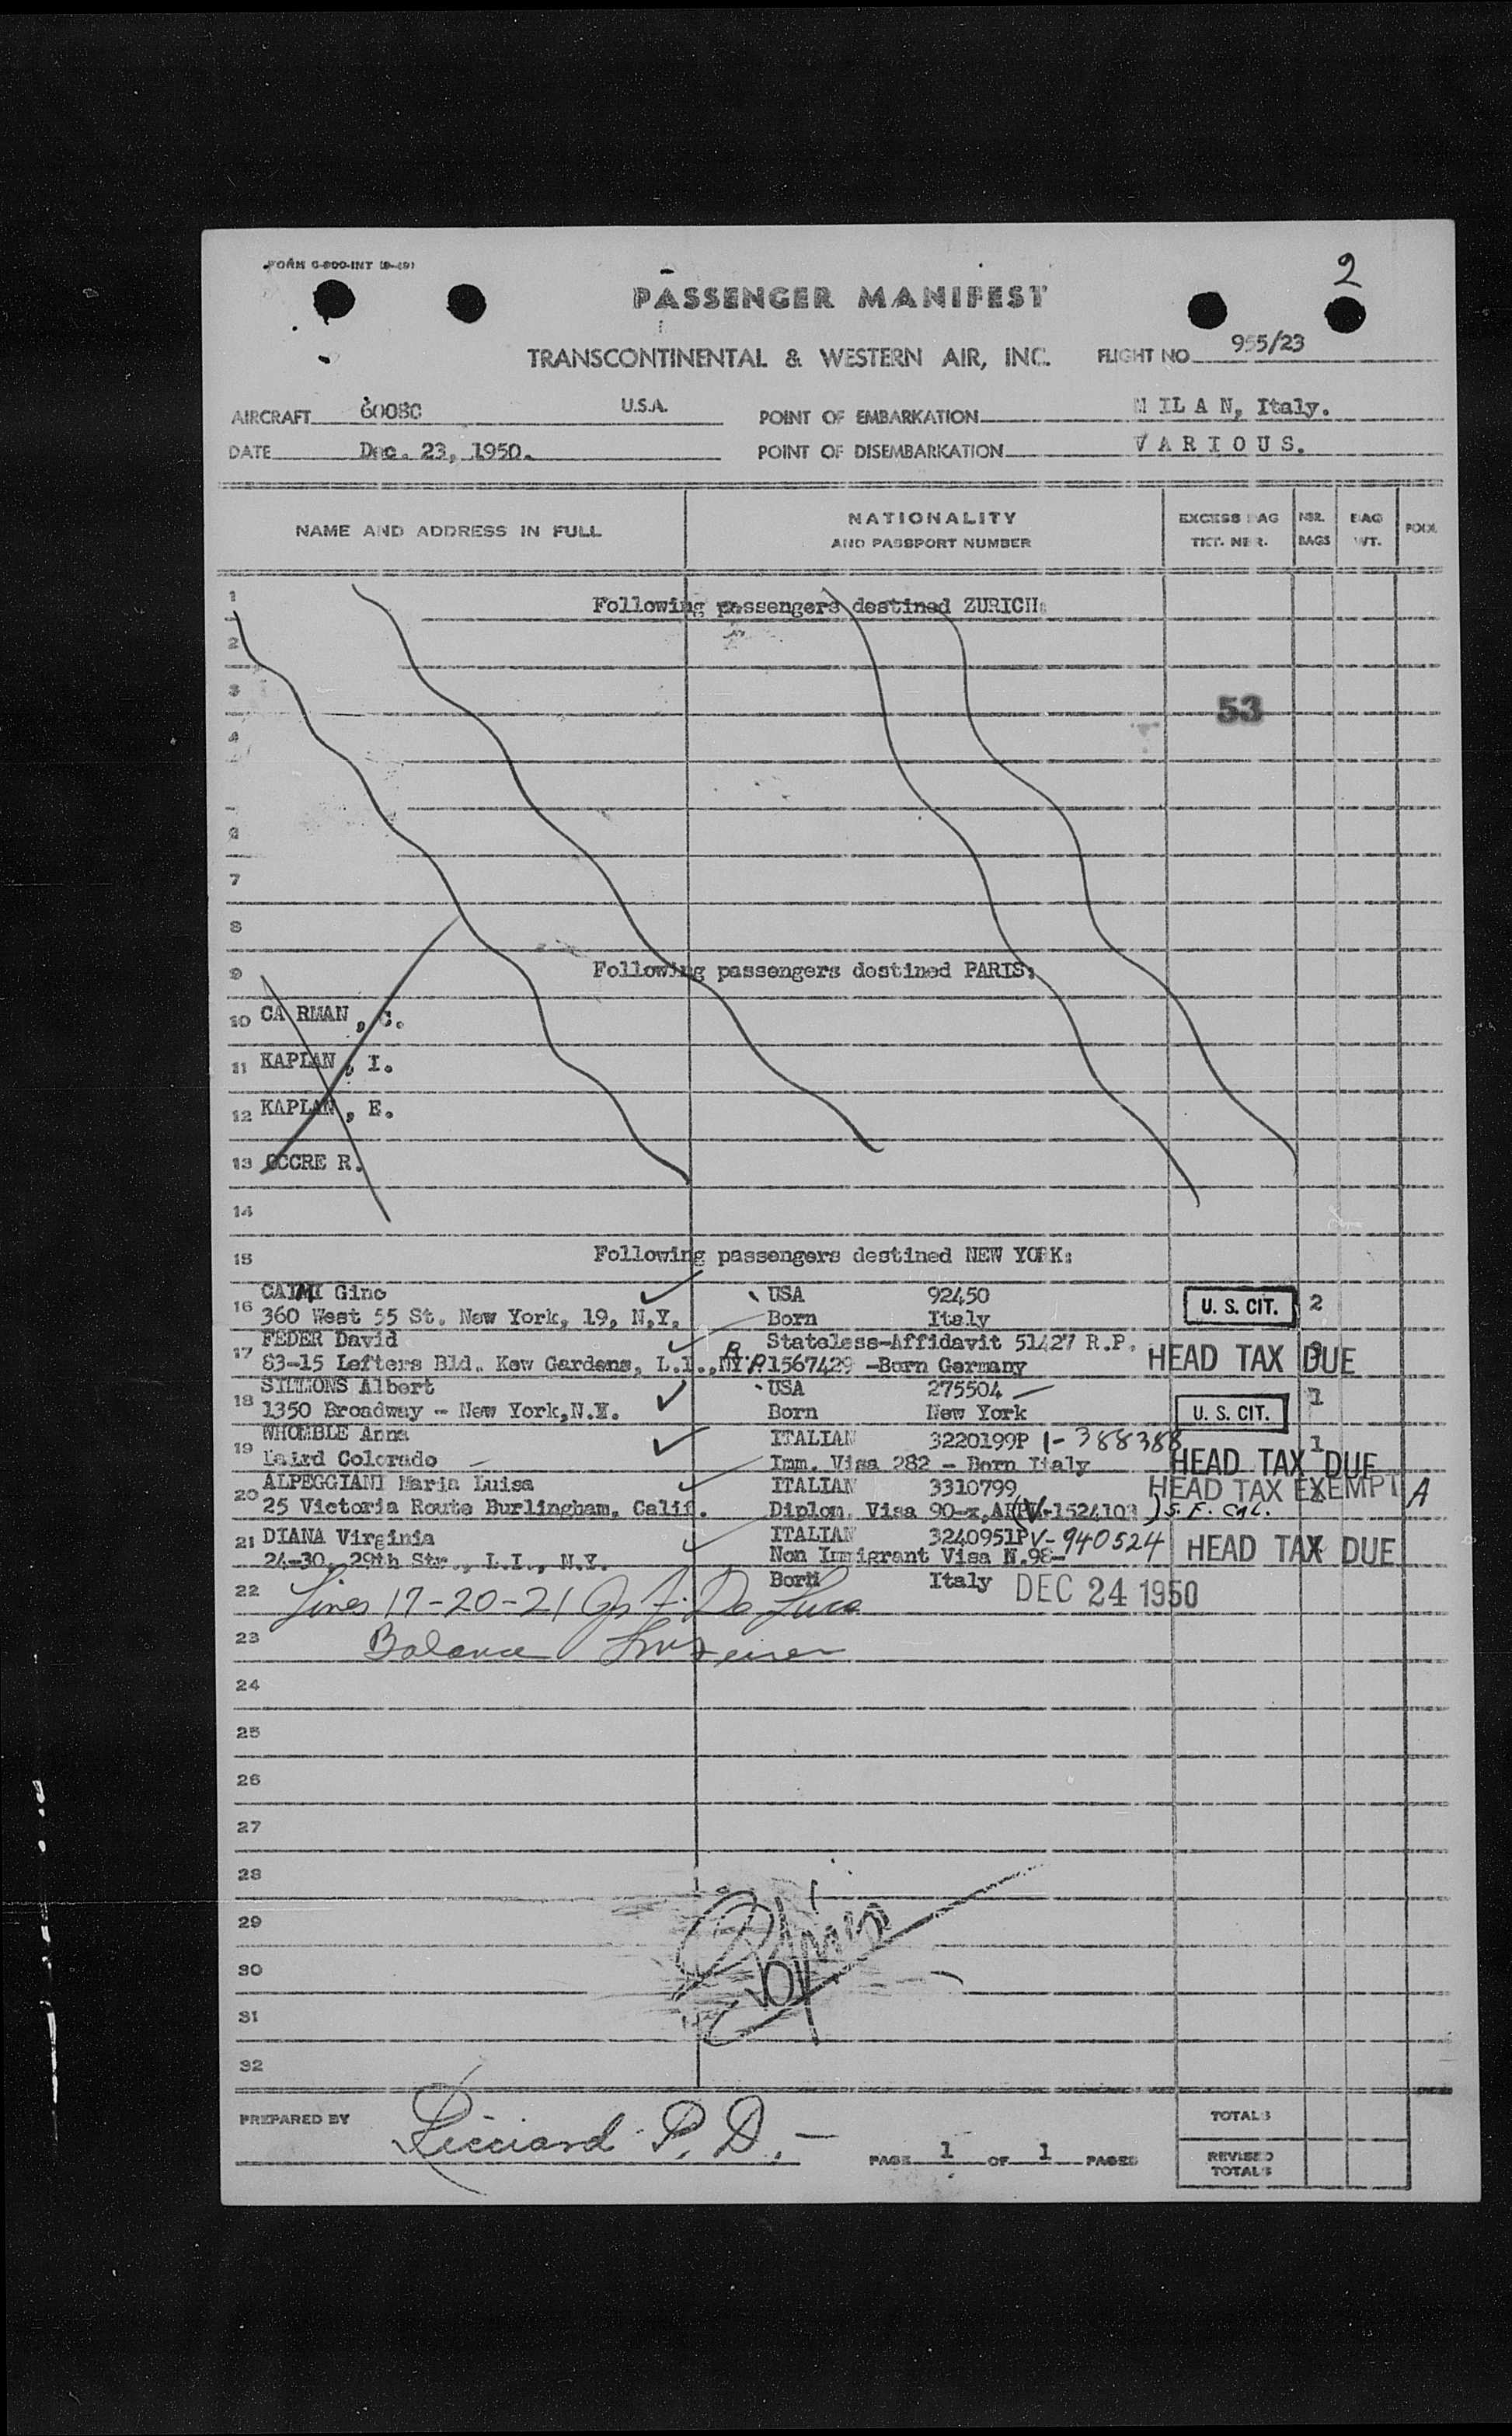 FORM C-800-INT (9-49)
2
PASSENGER MANIFEST
TRANSCONTINENTAL & WESTERN AIR, INC. FLIGHT NO 955/23
AIRCRAFT 6008C U.S.A. POINT OF EMBARKATION M IL A N, Italy.
DATE Dec. 23, 1950. POINT OF DISEMBARKATION V A R I O U S.
NAME AND ADDRESS IN FULL NATIONALITY AND PASSPORT NUMBER EXCESS BAG TKT. NBR. NBR. BAGS BAG WT.
1 Following passengers destined ZURICH:
2
3 53
4
6
7
8
9 Following passengers destined PARIS:
10 CA RMAN , C.
11 KAPLAN , I.
12 KAPLAN , E.
13 OCCRE R.
14
15 Following passengers destined NEW YORK:
16 CAIMI Gino USA 92450 U. S. CIT. 2
360 West 55 St. New York, 19, N.Y. Born Italy
17 FEDER David Stateless-Affidavit 51427 R.P.
83-15 Lefters Bld. Kew Gardens, L.I., NY R.P. 1567429 -Born Germany HEAD TAX DUE
18 SILLIONS Albert USA 275504 1
1350 Broadway - New York,N.Y. Born New York U. S. CIT.
19 WHOMBLE Anna ITALIAN 3220199P I-388388 1
Laird Colorado Imm. Visa 282 - Born Italy HEAD TAX DUE
20 ALPEGGIANI Maria Luisa ITALIAN 3310799 HEAD TAX EXEMPT A
25 Victoria Route Burlingham, Calif. Diplom. Visa 90-x, (V-1524103) S.F. Cal.
21 DIANA Virginia ITALIAN 3240951P V-940524 HEAD TAX DUE
24-30, 29th Str., L.I., N.Y. Non Immigrant Visa N.98-
Born Italy DEC 24 1950
22 Lines 17-20-21 De Luca
23 Balance
24
25
26
27
28
29
30
31
32
PREPARED BY Ricciard P. D. PAGE 1 OF 1 PAGES
TOTALS
REVISED TOTALS